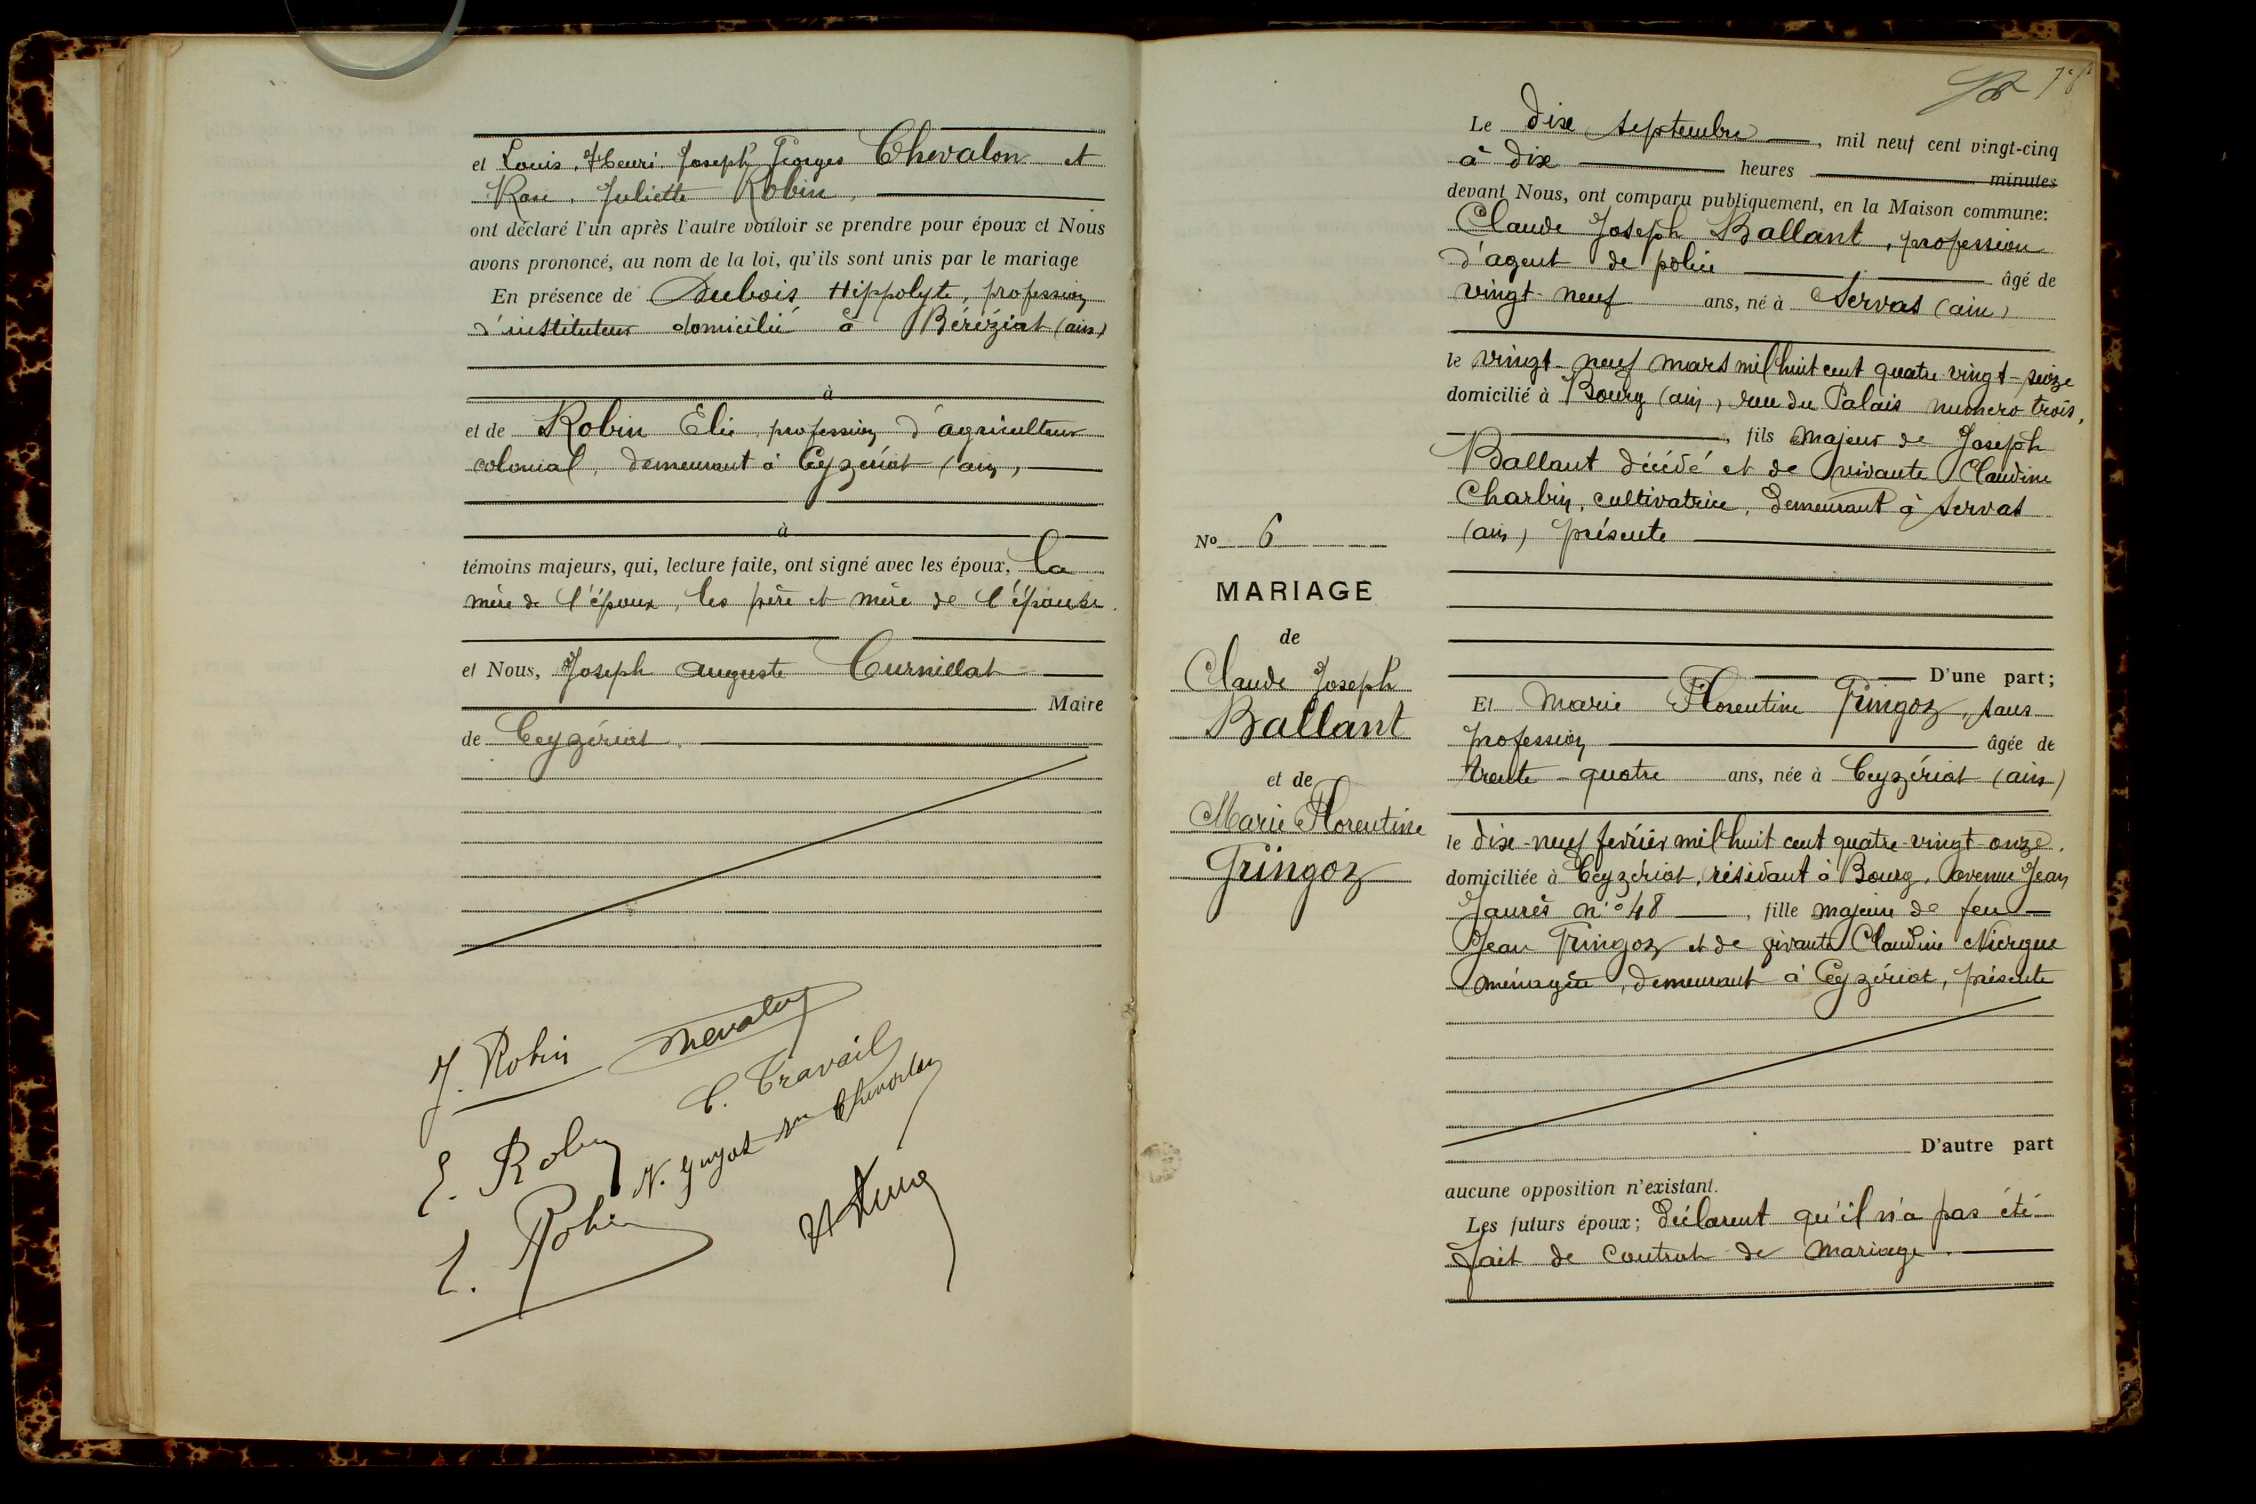 et Louis, Henri Joseph Georges Chevalon et
Rose, Juliette Robin,
ont déclaré l'un après l'autre vouloir se prendre pour époux et Nous
avons prononcé, au nom de la loi, qu'ils sont unis par le mariage
En présence de Dubois Hippolyte, profession
d'instituteur domicilié à Béréziat (ain)
à
et de Robin Elie, profession d'agriculteur
colonial, demeurant à Ceyzériat (ain),
à
témoins majeurs, qui, lecture faite, ont signé avec les époux, la
mère de l'époux, les père et mère de l'épouse.
et Nous, Joseph Auguste Curnillat
Maire
de Ceyzériat.
J. Robin Chevalon
C. Travail
E. Robin N. Guyot Chevalon
E. Robin
78
Le Dix septembre, mil neuf cent vingt-cinq
à dix heures minutes
devant Nous, ont comparu publiquement, en la Maison commune:
Claude Joseph Ballant, profession
d'agent de police âgé de
vingt-neuf ans, né à Servas (ain)
le vingt-neuf mars mil huit cent quatre vingt-seize
domicilié à Bourg (ain), rue du Palais numéro trois,
, fils majeur de Joseph
Ballant décédé et de vivante Claudine
Charbin, cultivatrice, demeurant à Servas
(ain) présente
D'une part;
No 6
MARIAGE
de
Claude Joseph
Ballant
et de
Marie Florentine
Gringoz
Et Marie Florentine Gringoz, sans
profession âgée de
trente-quatre ans, née à Ceyzériat (ain)
le dix-neuf février mil huit cent quatre-vingt-onze.
domiciliée à Ceyzériat, résidant à Bourg, avenue Jean
Jaurès n° 48, fille majeure de feu
Jean Gringoz et de vivante Claudine Niergue
ménagère, demeurant à Ceyzériat, présente
D'autre part
aucune opposition n'existant.
Les futurs époux; déclarent qu'il n'a pas été
fait de contrat de mariage.